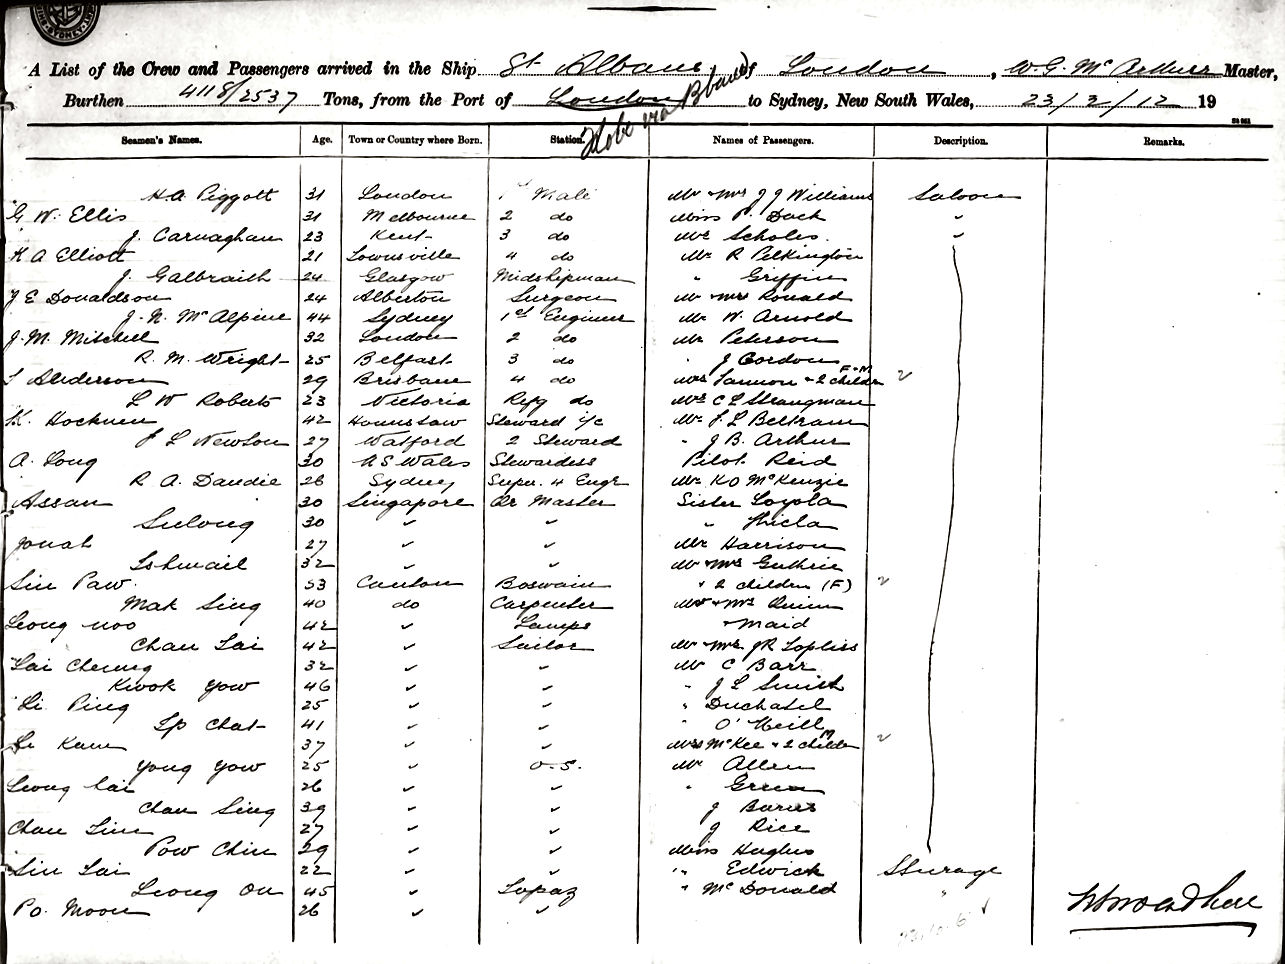 SYDNEY
A List of the Crew and Passengers arrived in the Ship St Albans of London, W. G. McArthur Master,
Burthen 4118/2537 Tons, from the Port of London Kobe via Bbane to Sydney, New South Wales, 23/2/12 19
Seamen's Names. Age. Town or Country where Born. Station. Names of Passengers. Description. Remarks.
H.A. Piggott 31 London 1st Mate Mr & Mrs J J Williams Saloon
G. W. Ellis 31 Melbourne 2 do Miss P. Dock "
J. Carnaghan 23 Kent 3 do Mr Scholes. "
K A Elliott 21 Townsville 4 do Mr R Pilkington
J. Galbraith 24 Glasgow Midshipman " Griffin
J E Donaldson 24 Alberton Surgeon Mr & Mrs Ronald
J. N. McAlpine 44 Sydney 1st Engineer Mr W. Arnold
J. M. Mitchell 32 London 2 do Mr Peterson
R. M. Wright 25 Belfast 3 do " J Gordon
Anderson 29 Brisbane 4 do Mrs Lannon & 2 childn F + M
L W Roberts 23 Victoria Rfg do Mrs C L Strangman
K. Hockner 42 Hounslow Steward i/c Mr F. L Beltram
J L Newson 27 Watford 2 Steward " J B. Arthur
A. Long 30 N S Wales Stewardess Pilot Reid
R A. Dandie 26 Sydney Super. 4 Engr Mr K O McKenzie
Assan 30 Singapore Qr Master Sister Loyola
Sulong 30 " " " Thicla
Jonah 27 " " Mr Harrison
Ishmail 32 " " Mr & Mrs Guthrie
Sin Paw 53 Canton Boswain & 2 children (F)
Mak Sing 40 do Carpenter Mr & Mrs Quinn
Leong Woo 42 " Lamps & maid
Chan Lai 42 " Sailor Mr & Mrs J R Lopliss
Lai Cheung 32 " " Mr C Barr
Kwok Yow 46 " " " J L Smith
Li Ping 25 " " " Duchatel
Ip Chat 41 " " " O'Neill
Li Kam 37 " " Mrs McKee & 2 childn M
Yong Yow 25 " O.S. Mr Allen
Leong Lai 26 " " " Green
Chan Sing 39 " " J
Chan Lim 27 " " J Rice
Pow Chin 29 " " Miss Hughes
Sin Lai 22 " " " Edwick Steerage
Leong On 45 " Topaz " McDonald "
Po Moon 26 " "